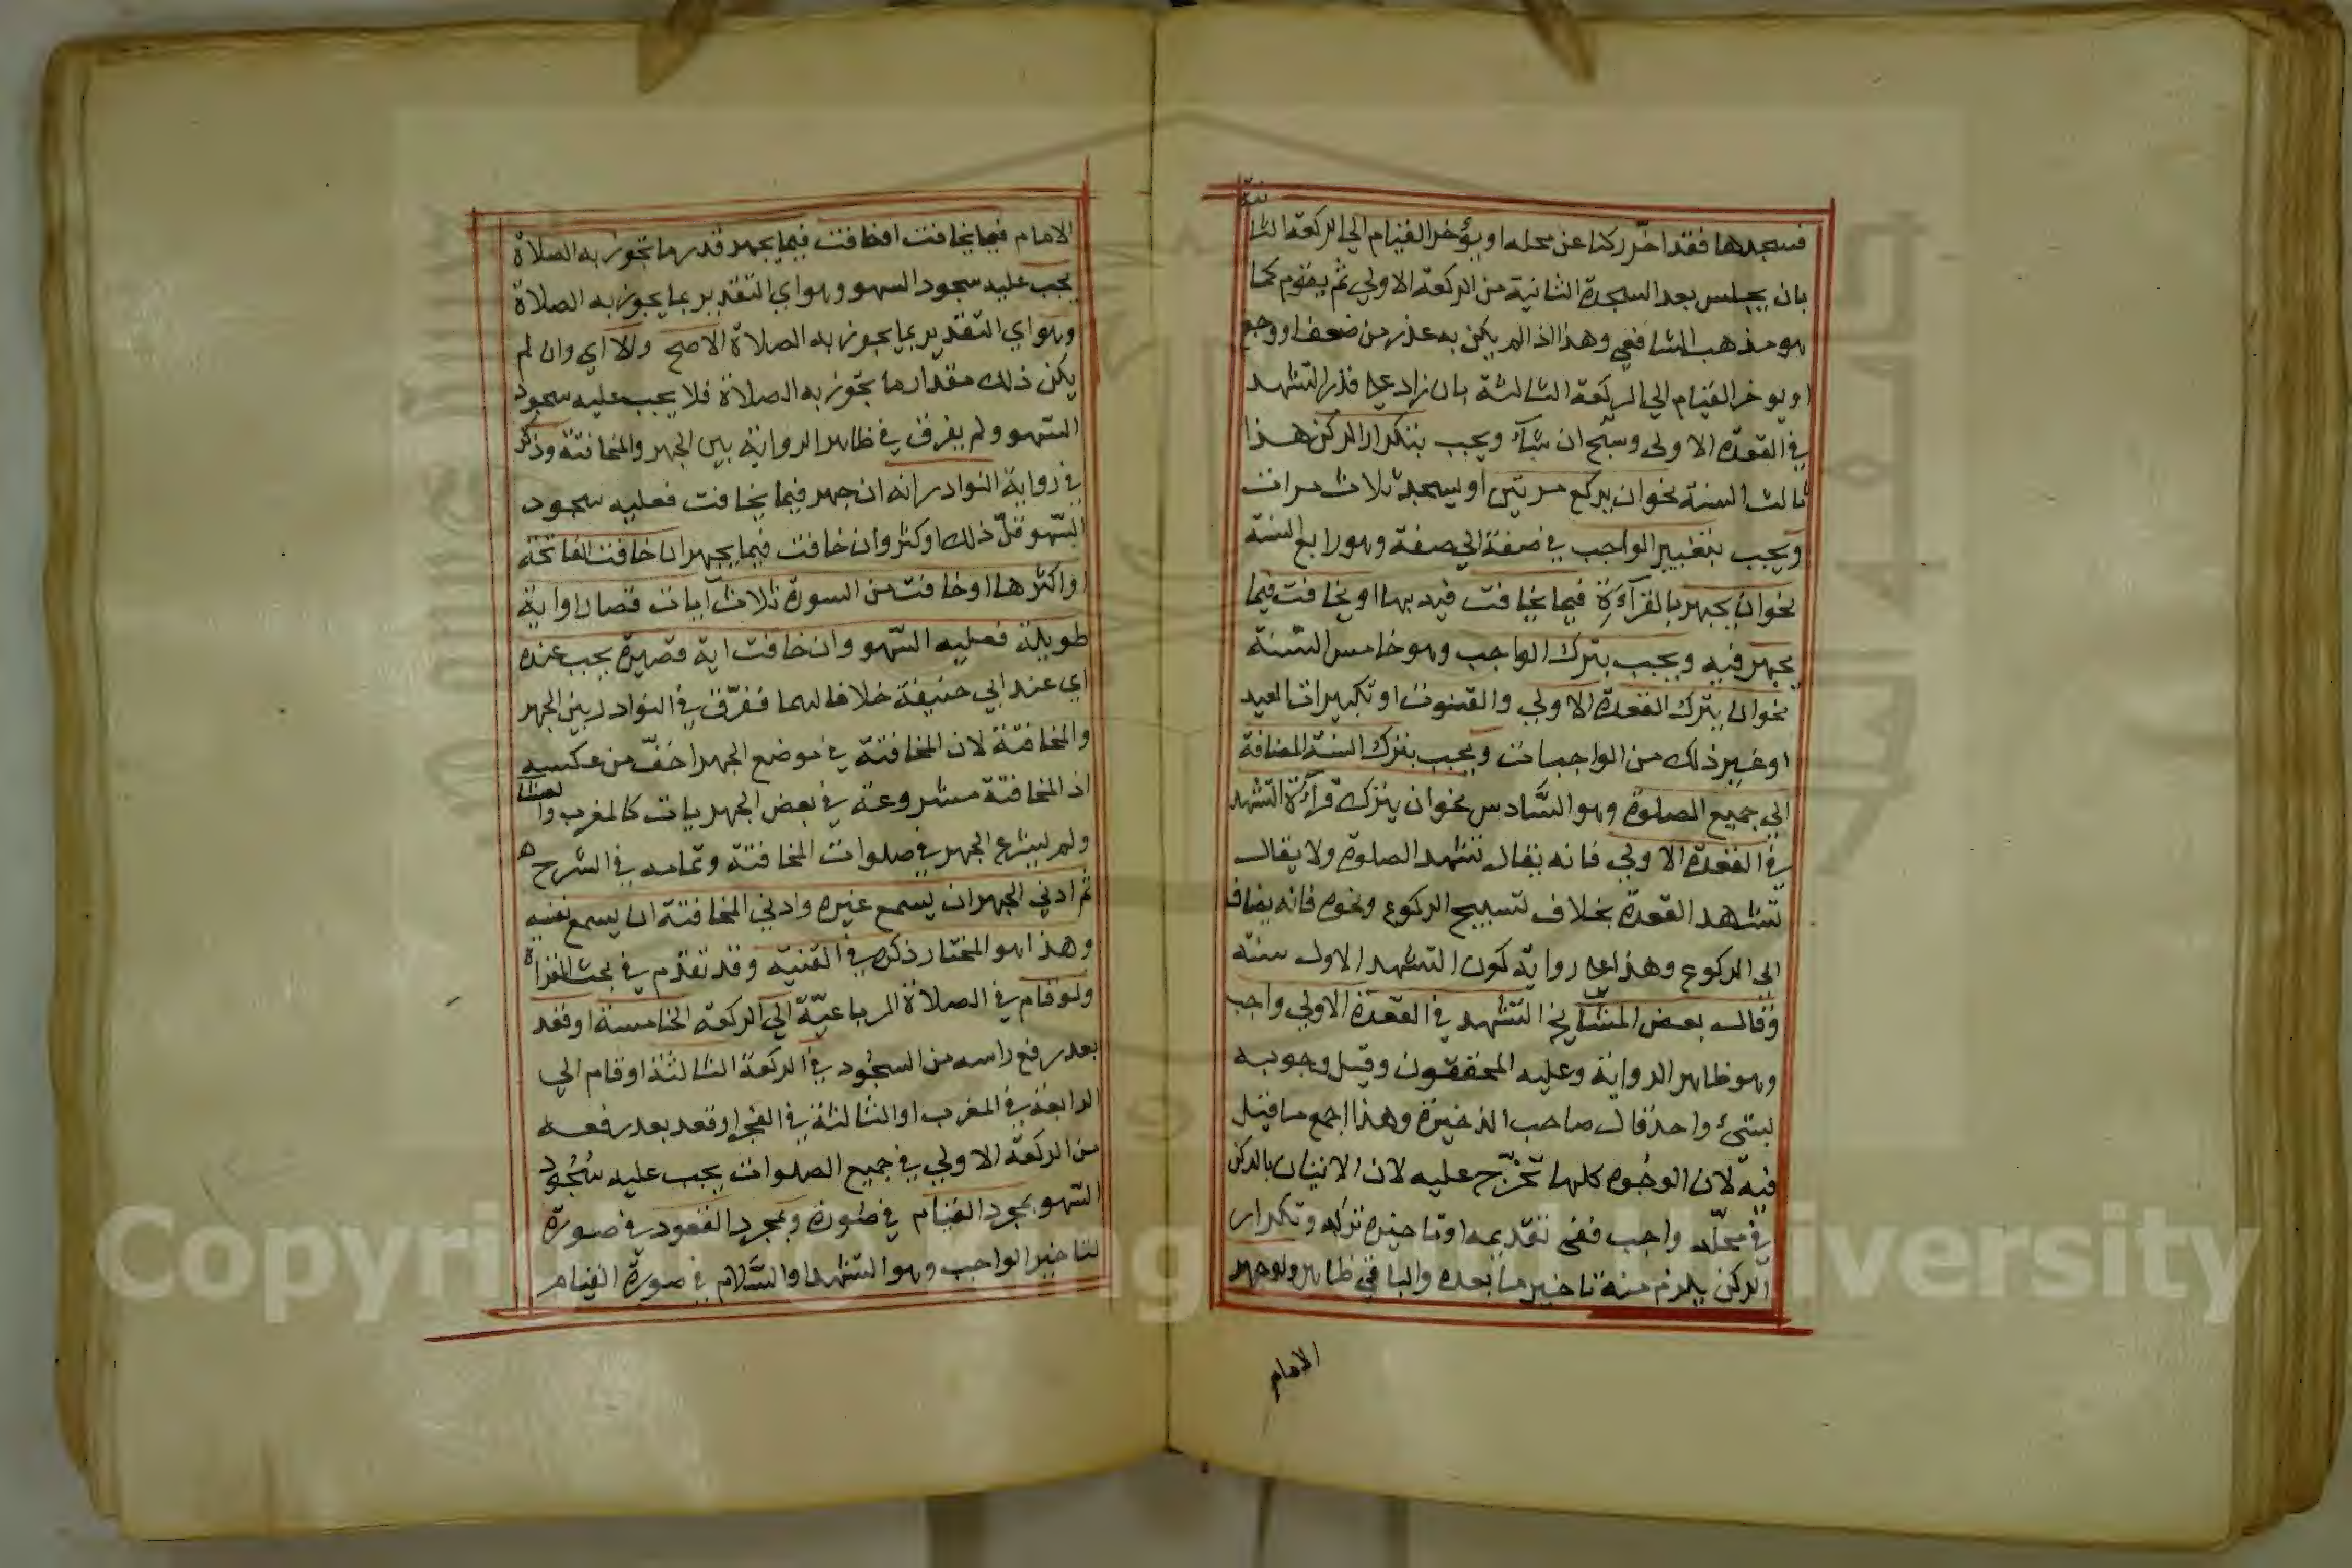 فسجدها فقد اخّر ركنا عن محله او يؤخر القيام الى الركعة الثانية
بان يجلس بعد السجدة الثانية من الركعة الاولي ثم يقوم كما
هو مذهب الشافعي وهذا اذا لم يكن به عذر من ضعف او وجع
او يوخر القيام الي الركعة الثالثة بان زاد على قدر التشهد
في القعدة الاولى وسبّح ان شاء ويجب بتكرار الركن هذا
ثالث الستة نحو ان يركع مرتين او يسجد ثلاث مرات
ويجب بتغيير الواجب في صفة الي صفة وهو رابع الستة
نحو ان يجهر بالقرآءة فيما يخافت فيه بها او يخافت فيما
يجهر فيه ويجب بترك الواجب وهو خامس الستة
نحو ان يترك القعدة الاولي والقنوت او تكبيرات العيد
او غير ذلك من الواجبات ويجب بترك السنة المضافة
الي جميع الصلوة وهو السّادس نحو ان يترك قرآءة التشهد
في القعدة الاولي فانه يقال تشهد الصلوة ولا يقال
تشهد القعدة بخلاف تسبيح الركوع ونحوه فانه يضاف
الى الركوع وهذا على رواية كون التشهد الاول سنة
وقال بعض المشايخ التشهد في القعدة الاولي واجب
وهو ظاهر الرواية وعليه المحققون وقيل وجوبه
لشئ واحد قال صاحب الذخيرة وهذا اجمع ما قيل
فيه لان الوجوه كلها تخرّج عليه لان الاتيان بالركن
في محلّه واجب ففي تقديمه او تاخيره تركه وتكرار
الركن يلزم منه تاخير ما بعده والباقي ظاهر ولو جهر
الامام
الامام فيما يخافت او خافت فيما يجهر قدر ما تجوز به الصلاة
يجب عليه سجود السهو وهو اي التقدير بما يجوز به الصلاة
وهو اي التقدير بما يجوز به الصلاة الاصح والا اي وان لم
يكن ذلك مقدار ما تجوز به الصلاة فلا يجب عليه سجود
السهو ولم يفرق في ظاهر الرواية بين الجهر والمخافتة وذكر
في رواية النوادر انه ان جهر فيما يخافت فعليه سجود
السّهو قلّ ذلك او كثر وان خافت فيما يجهر ان خافت الفاتحة
او اكثرها او خافت من السورة ثلاث آيات قصار او اية
طويلة فعليه السّهو وان خافت اية قصيرة يجب عنده
اي عند ابي حنيفة خلافا لهما ففرّق في النوادر بين الجهر
والمخافتة لان المخافتة في موضع الجهر اخفّ من عكسه
اذ المخافتة مشروعة في بعض الجهريات كالمغرب والعشا
ولم يشرع الجهر في صلوات المخافتة وتمامه في الشرح ه
ثم ادني الجهر ان يسمع غيره وادني المخافتة ان يسمع نفسه
وهذا هو المختار ذكره في القنية وقد تقدم في بحث القراة
ولو قام في الصلاة الرباعيّة الي الركعة الخامسة او قعد
بعد رفع راسه من السجود في الركعة الثالثة او قام الي
الرابعة في المغرب او الثالثة في الفجر او قعد بعد رفعه
من الركعة الاولي في جميع الصلوات يجب عليه سُجُود
السّهو بمجرد القيام في صورة وبمجرد القعود في صورة
لتاخير الواجب وهو التشهد او السّلام في صورة القيام